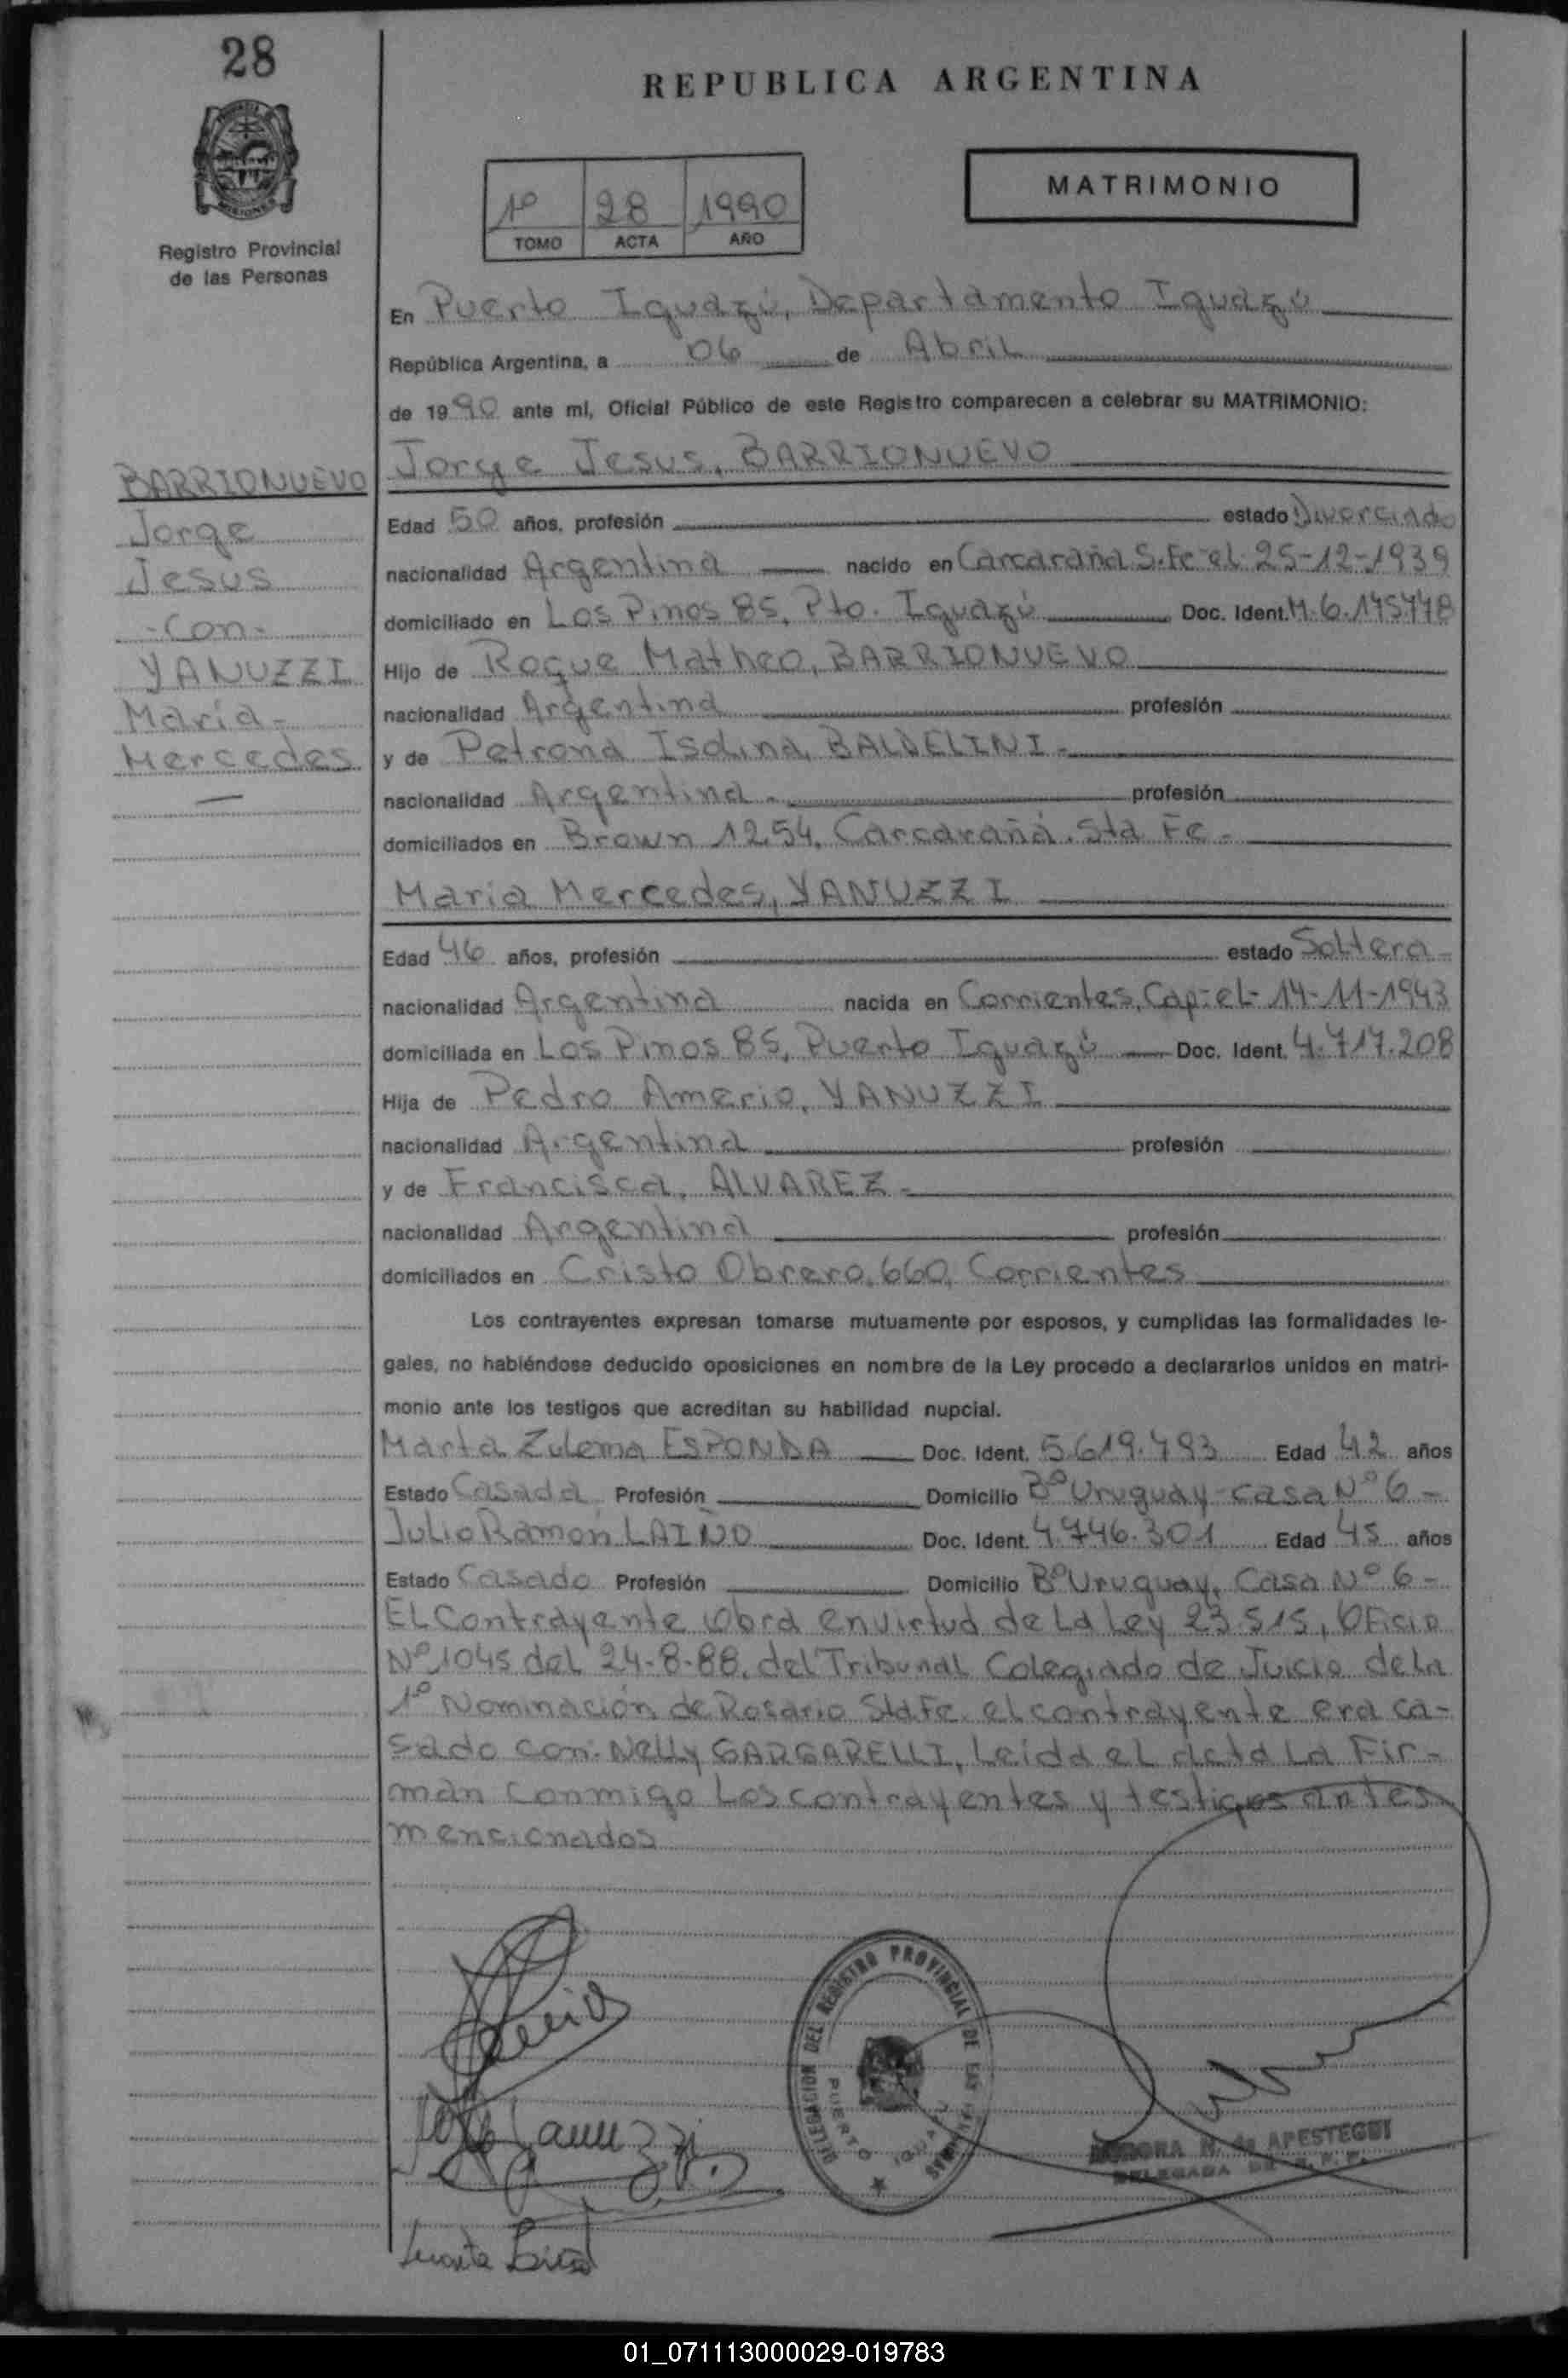 28
REPUBLICA ARGENTINA
MISIONES
1º 28 1990
TOMO ACTA AÑO
MATRIMONIO
Registro Provincial
de las Personas
En Puerto Iguazú, Departamento Iguazú
República Argentina, a 06 de Abril
de 1990 ante mí, Oficial Público de este Registro comparecen a celebrar su MATRIMONIO:
Jorge Jesus, BARRIONUEVO
BARRIONUEVO
Jorge
Jesus
- Con -
YANUZZI
María -
Mercedes
Edad 50 años, profesión estado Divorciado
nacionalidad Argentina nacido en Carcarañá S. Fe el 25-12-1939
domiciliado en Los Pinos 85, Pto. Iguazú Doc. Ident. M. 6.145448
Hijo de Roque Matheo, BARRIONUEVO
nacionalidad Argentina profesión
y de Petrona Isolina, BALDELINI -
nacionalidad Argentina - profesión
domiciliados en Brown 1254, Carcarañá. Sta Fe -
Maria Mercedes, YANUZZI
Edad 46 años, profesión estado Soltera -
nacionalidad Argentina nacida en Corrientes, Cap: el 14-11-1943
domiciliada en Los Pinos 85, Puerto Iguazú Doc. Ident. 4.717.208
Hija de Pedro Americo, YANUZZI
nacionalidad Argentina profesión
y de Francisca, ALVAREZ -
nacionalidad Argentina profesión
domiciliados en Cristo Obrero, 660, Corrientes
Los contrayentes expresan tomarse mutuamente por esposos, y cumplidas las formalidades le-
gales, no habiéndose deducido oposiciones en nombre de la Ley procedo a declararlos unidos en matri-
monio ante los testigos que acreditan su habilidad nupcial.
Marta Zulema ESPONDA Doc. Ident. 5.619.793 Edad 42 años
Estado Casada Profesión Domicilio Bº Uruguay - casa Nº 6 -
Julio Ramón LAIÑO Doc. Ident. 4.746.301 Edad 45 años
Estado Casado Profesión Domicilio Bº Uruguay, Casa Nº 6 -
El Contrayente obra en virtud de La Ley 23.515, Oficio
Nº 1045 del 24-8-88, del Tribunal Colegiado de Juicio de La
1º Nominación de Rosario Sta Fe. el contrayente era ca-
sado con: Nelly GARGARELLI, Leida el acta La Fir-
man conmigo Los contrayentes y testigos antes
mencionados
DELEGACION DEL REGISTRO PROVINCIAL DE LAS PERSONAS
PUERTO IGUAZU
N. de APESTEGUI
DELEGADA DE R. P. P.
01_071113000029-019783